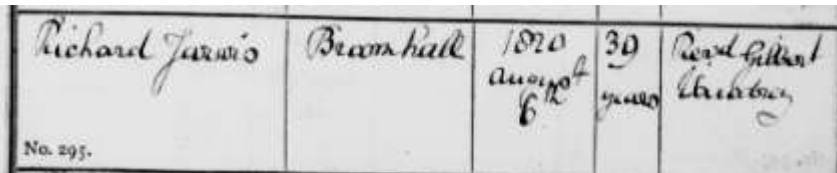 Richard Jarvis
No. 295.
Broomhall
1820
August
6th
39
years
Revd Gilbert